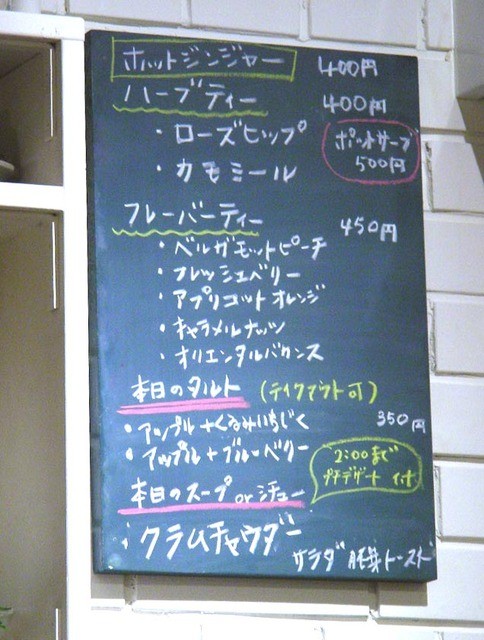 ホットジンジャー 400円
ハーブティー 400円
・ローズヒップ
・カモミール
ポットサーブ
500円
フレーバーティー 450円
・ベルガモットピーチ
・フレッシュベリー
・アプリコットオレンジ
・キャラメルナッツ
・オリエンタルバカンス
本日のタルト (テイクアウト可)
350円
・アップル+くるみいちじく
・アップル+ブルーベリー
2:00まで
プチデザート付
本日のスープorシチュー
クラムチャウダー
サラダ トースト